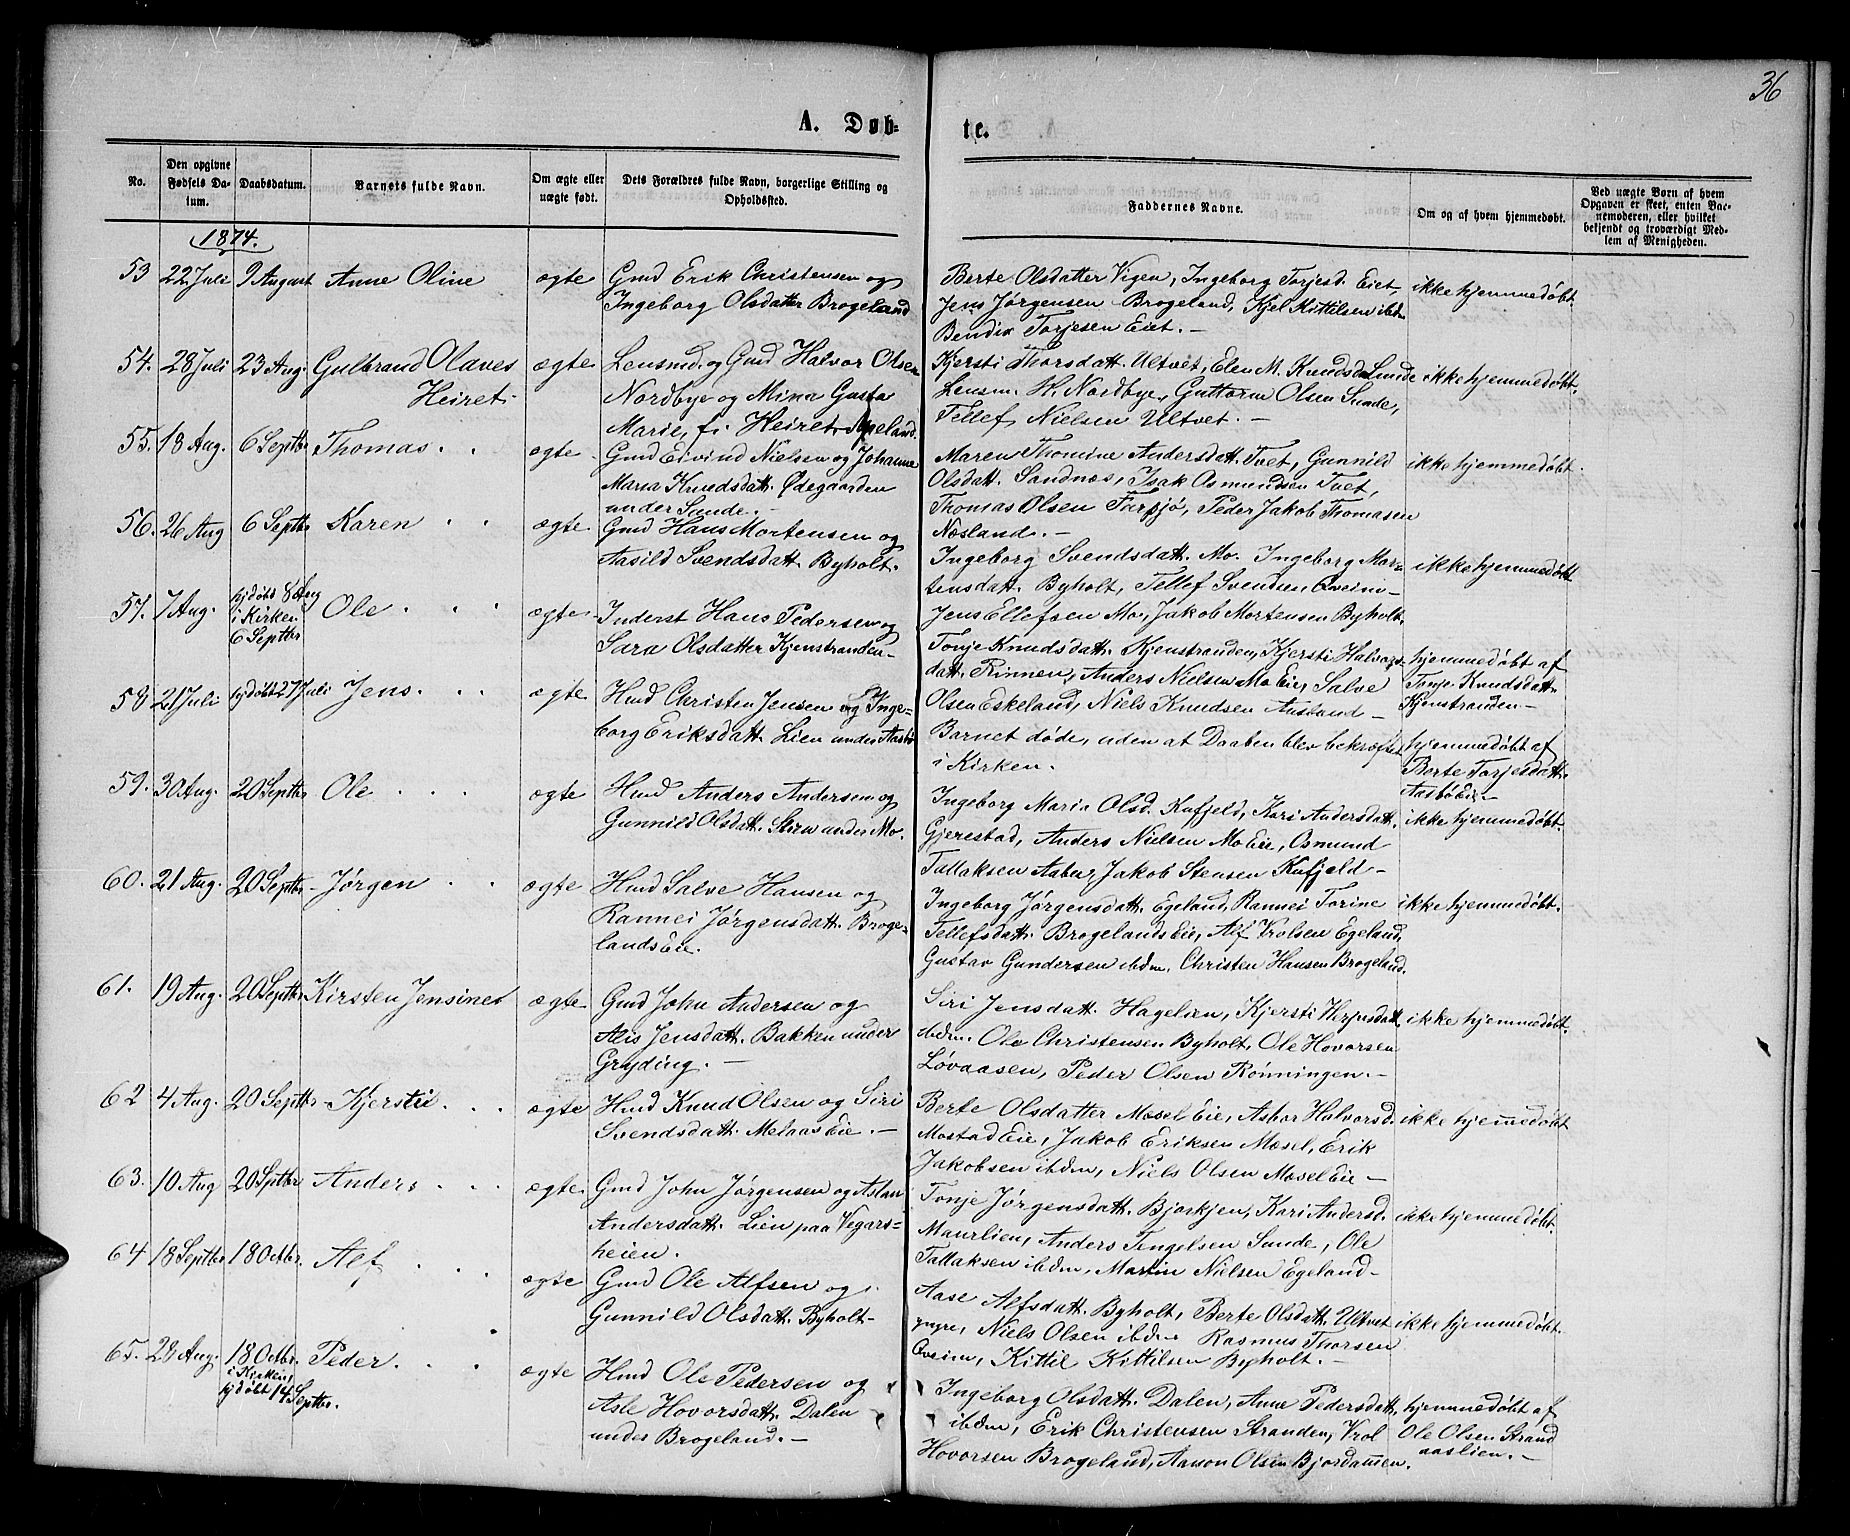 36
A. Døb-
te.
No.
Den opgivne Fødsels Da-tum.
Daabsdatum.
Barnets fulde Navn.
Om ægte eller uægte født.
Dets Forældres fulde Navn, borgerlige Stilling og Opholdssted.
Faddernes Navne.
Om og af hvem hjemmedøbt.
Ved uægte Børn af hvem Opgaven er skeet, enten Bar-nemoderen, eller hvilket bekjendt og troværdigt Med-lem af Menigheden.
1874.
53 22 Juli 9 August Anne Oline ægte Gmd Erik Christensen og
Ingeborg Olsdatter Brogeland
Berte Olsdatter Vigen, Ingeborg Torjesd. Eiet,
Jens Jørgensen Brogeland, Kjel Kittilsen ibdm
Bendix Torjesen Eiet. —
ikke hjemmedøbt
54. 28 Juli 23 Aug. Gulbrand Olaves
Heiret.
ægte Lensmd. og Gmd Halvor Olsen
Nordbye og Mina Gusta
Marie, f. Heiret, Apeland.
Kjersti Thorsdatt. Ultvet, Elen M. Knudsd. Sunde
Lensm. H. Nordbye, Guttorm Olsen Sunde,
Tellef Nielsen Ultvet. —
ikke hjemmedøbt.
55. 18 Aug. 6 Septbr Thomas. ægte. Gmd Eivind Nielsen og Johanne
Maria Knudsdatt. Ødegaarden
under Sunde. —
Maren Thomine Andersdatt. Tvet, Gunnild
Olsdatt. Sandnæs, Isak Osmundsen Tvet,
Thomas Olsen Torsjø, Peder Jakob Thomasen
Næsland. —
ikke hjemmedøbt.
56. 26 Aug 6 Septbr Karen ægte Gmd Hans Mortensen og
Aasild Svendsdatt. Byholt.
Ingeborg Svendsdatt. Mo. Ingeborg Mar-
tensdatt. Byholt, Tellef Svendsen Qveim
Jens Ellefsen Mo, Jakob Mortensen Byholt.
ikke hjemmedøbt
57. 7 Aug. hjdøbt 8 Aug
i Kirken
6 Septbr
Ole ægte Inderst Hans Pedersen og
Sara Olsdatter Kjenstranden
Tonje Knudsdatt. Kjenstranden, Kjersti Halvors-
datt. Rinnen, Anders Nielsen Mo Eie, Salve
Olsen Eskeland, Niels Knudsen Ausland —
hjemmedøbt af
Tonje Knudsdatt.
Kjenstranden —
58 21 Juli hjdøbt 27 Juli Jens. ægte Hmd Christen Jensen og Inge-
borg Eriksdatt. Lien under Aasbø
Barnet døde, uden at Daaben blev bekræftet
i Kirken.
hjemmedøbt af
Berte Torjesdatt.
Aasbø Eie —
59. 30 Aug. 20 Septbr Ole ægte Hmd Anders Andersen og
Gunnild Olsdatt. Steen under Mo.
Ingeborg Marie Olsd. Kufjeld, Kari Andersdatt.
Gjerestad, Anders Nielsen Mo Eie, Osmund
Tallaksen Aabøe, Jakob Stensen Kufjeld —
ikke hjemmedøbt.
60. 21 Aug. 20 Septbr Jørgen ægte Hmd Salve Hansen og
Rannei Jørgensdatt. Broge-
lands Eie.
Ingeborg Jørgensdatt. Egeland, Rannei Torine
Tellefsdatt. Brogelands Eie, Alf Vrolsen Egeland,
Gustav Gundersen ibdm. Christen Hansen Brogeland.
ikke hjemmedøbt.
61. 19 Aug. 20 Septbr Kirsten Jensinet ægte Gmd John Andersen og
Alis Jensdatt. Bakken under
Gryding. —
Siri Jensdatt. Hagelien, Kjersti
ibdm. Ole Christensen Byholt, Ole Hovorsen
Løvaasen, Peder Olsen Rønningen. —
ikke hjemmedøbt.
62 4 Aug. 20 Septbr Kjersti ægte Hmd Knud Olsen og Siri
Svendsdatt. Melaas Eie. —
Berte Olsdatter Mosel Eie, Asbør Halvorsd.
Mostad Eie, Jakob Eriksen Mosel, Erik
Jakobsen ibdm, Niels Olsen Mosel Eie —
ikke hjemmedøbt
63. 10 Aug 20 Septbr Anders ægte Gmd John Jørgensen og Aslau
Andersdatt. Lien paa Vegars-
heien.
Tonje Jørgensdatt. Bjorkjen, Kari Andersd.
Maurlien, Anders Tengelsen Sunde, Ole
Tallaksen ibdm, Martin Nielsen Egeland —
ikke hjemmedøbt.
64 18 Septbr 18 Octbr. Alf ægte Gmd Ole Alfsen og
Gunnild Olsdatt. Byholt —
Aase Alfsdatt. Byholt, Berte Olsdatt. Ultvet
yngre, Niels Olsen ibdm Rasmus Thorsen
Qveim, Kittil Kittilsen Byholt. —
ikke hjemmedøbt.
65. 28 Aug. 18 Octbr.
i Kirken,
hjdøbt 14 Septbr.
Peder. ægte Hmd Ole Pedersen og
Asle Hovorsdatt. Dalen
under Brogeland. —
Ingeborg Olsdatt. Dalen, Anne Pedersdatt.
ibdm, Erik Christensen Stranden, Vrol
Hovorsen Brogeland, Aanon Olsen Bjordammen.
hjemmedøbt af
Ole Olsen Strand
aaslien. —